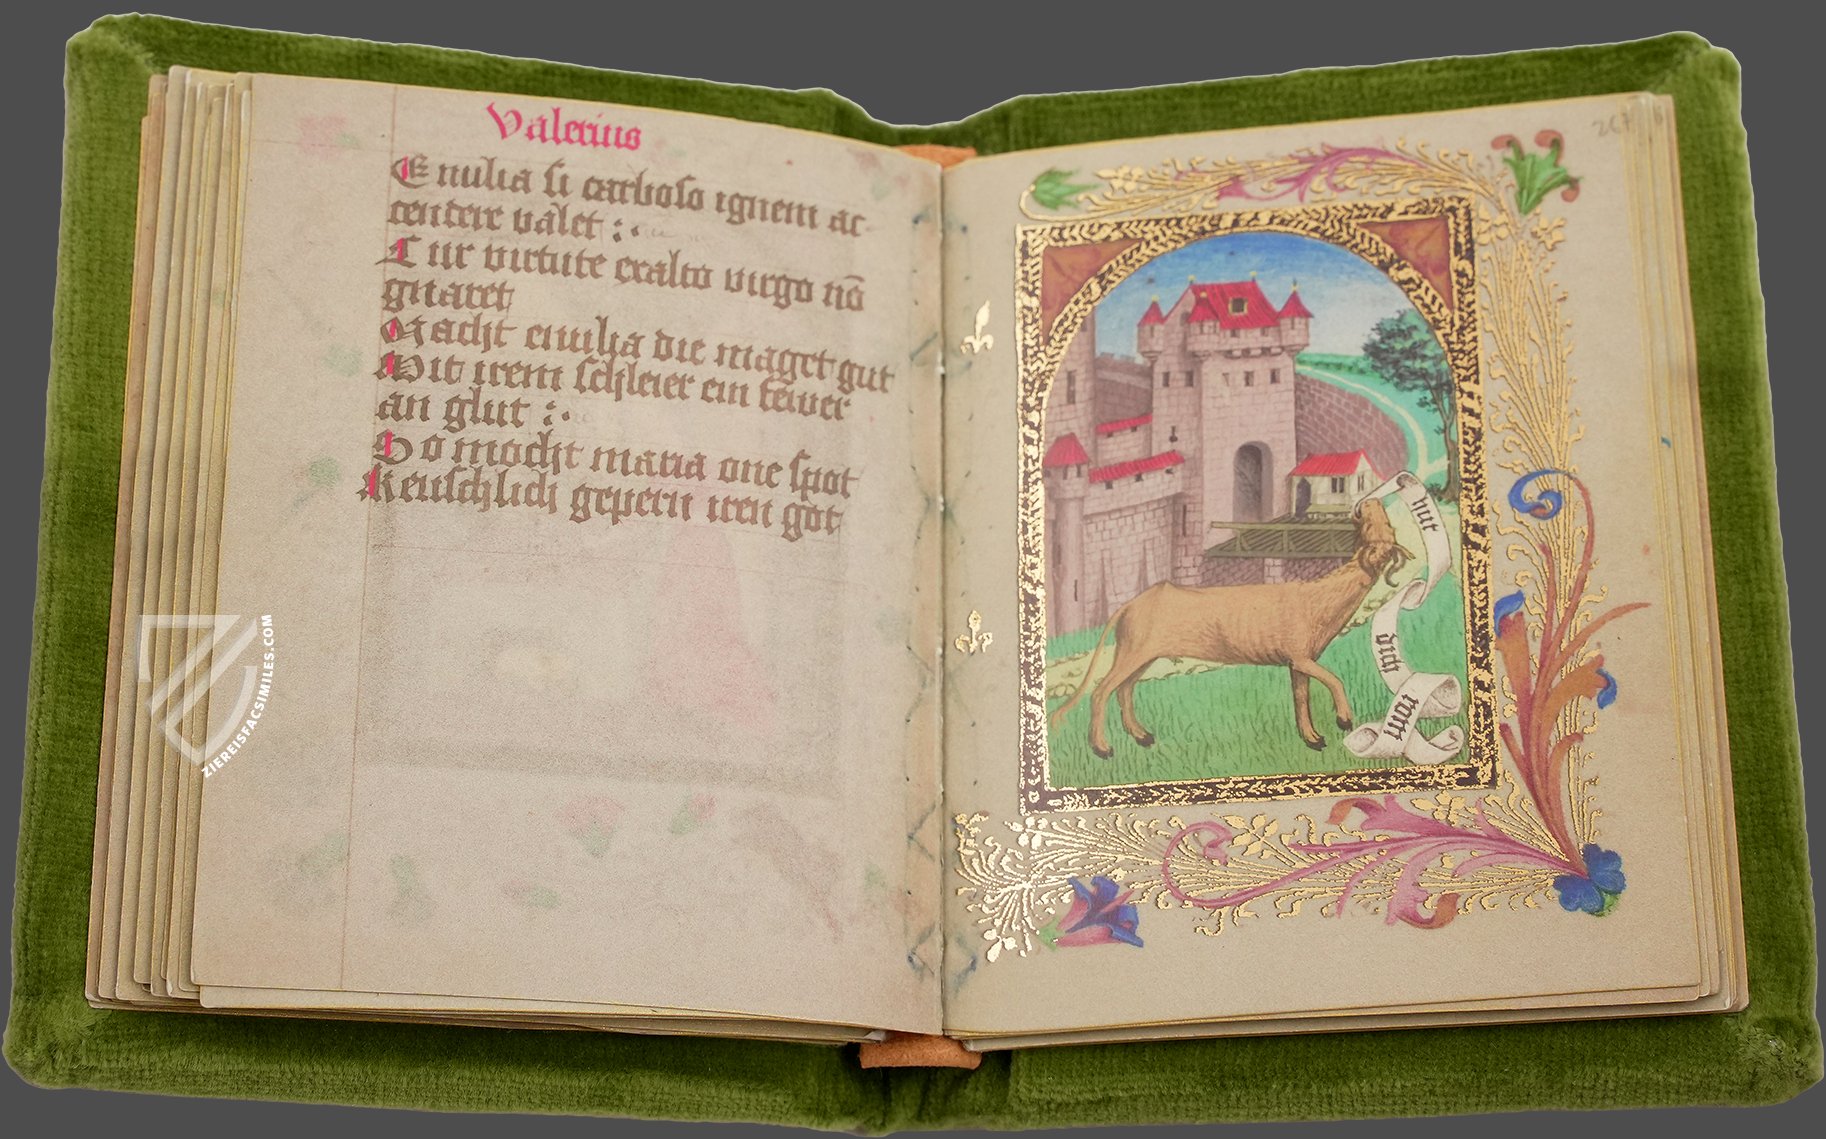 Valerius
Emilia si carboso ignem ac-
cendere valet :·
Cur virtute cralto virgo nō
gnaret
Macht emilia die maget gut
Mit irem schleier ein fewer
an glut :·
So mocht maria one spot
Keuschlich gepern iren got
267
hut
dich
rom
ZIEREISFACSIMILES.COM